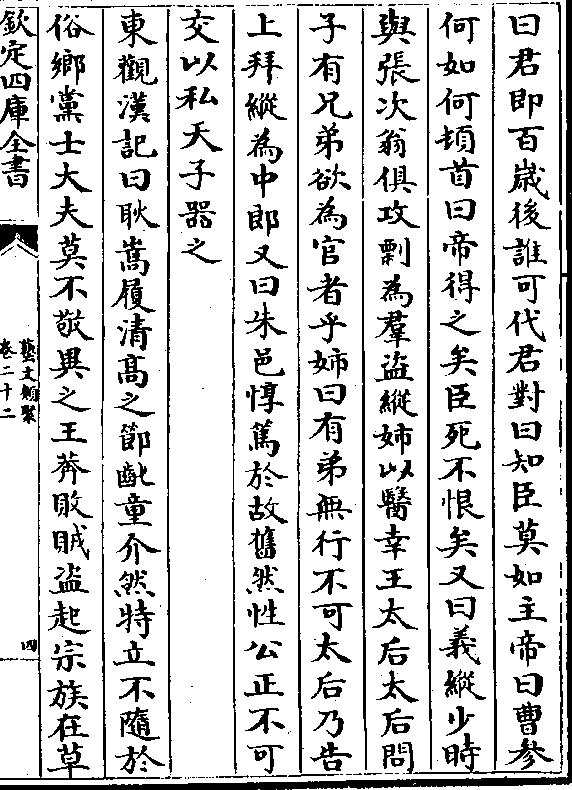 曰君即百歳後誰可代君對曰知臣莫如主帝曰曹參
何如何頓首曰帝得之矣臣死不恨矣又曰義縱少時
與張次翁俱攻剽為羣盜縱姊以醫幸王太后太后問
子有兄弟欲為官者乎姊曰有弟無行不可太后乃告
上拜縱為中郎又曰朱邑惇篤於故舊然性公正不可
交以私天子器之
東觀漢記曰耿嵩履清髙之節齔童介然特立不隨於
俗鄉黨士大夫莫不敬異之王莽敗賊盜起宗族在草
欽定四庫全書
藝文類聚
卷二十二
四